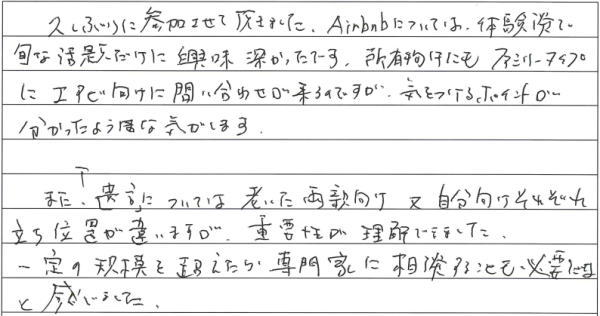 久しぶりに参加させて頂きました。Airbnbについては、体験談で
旬な話題だけに興味深かったです。所有物件にもファミリータイプ
にエアビ向けに問い合わせが来るのですが、気をつけるポイントが
分かったような気がします。
また、「遺言」については老いた両親向け又自分向けそれぞれ
立ち位置が違いますが、重要性が理解できました。
一定の規模を超えたら専門家に相談することも必要だな
と感じました。